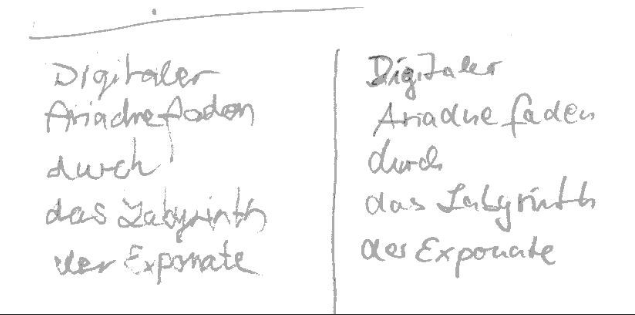 Digitaler
Ariadnefaden
durch
das Labyrinth
der Exponate
Digitaler
Ariadnefaden
durch
das Labyrinth
der Exponate